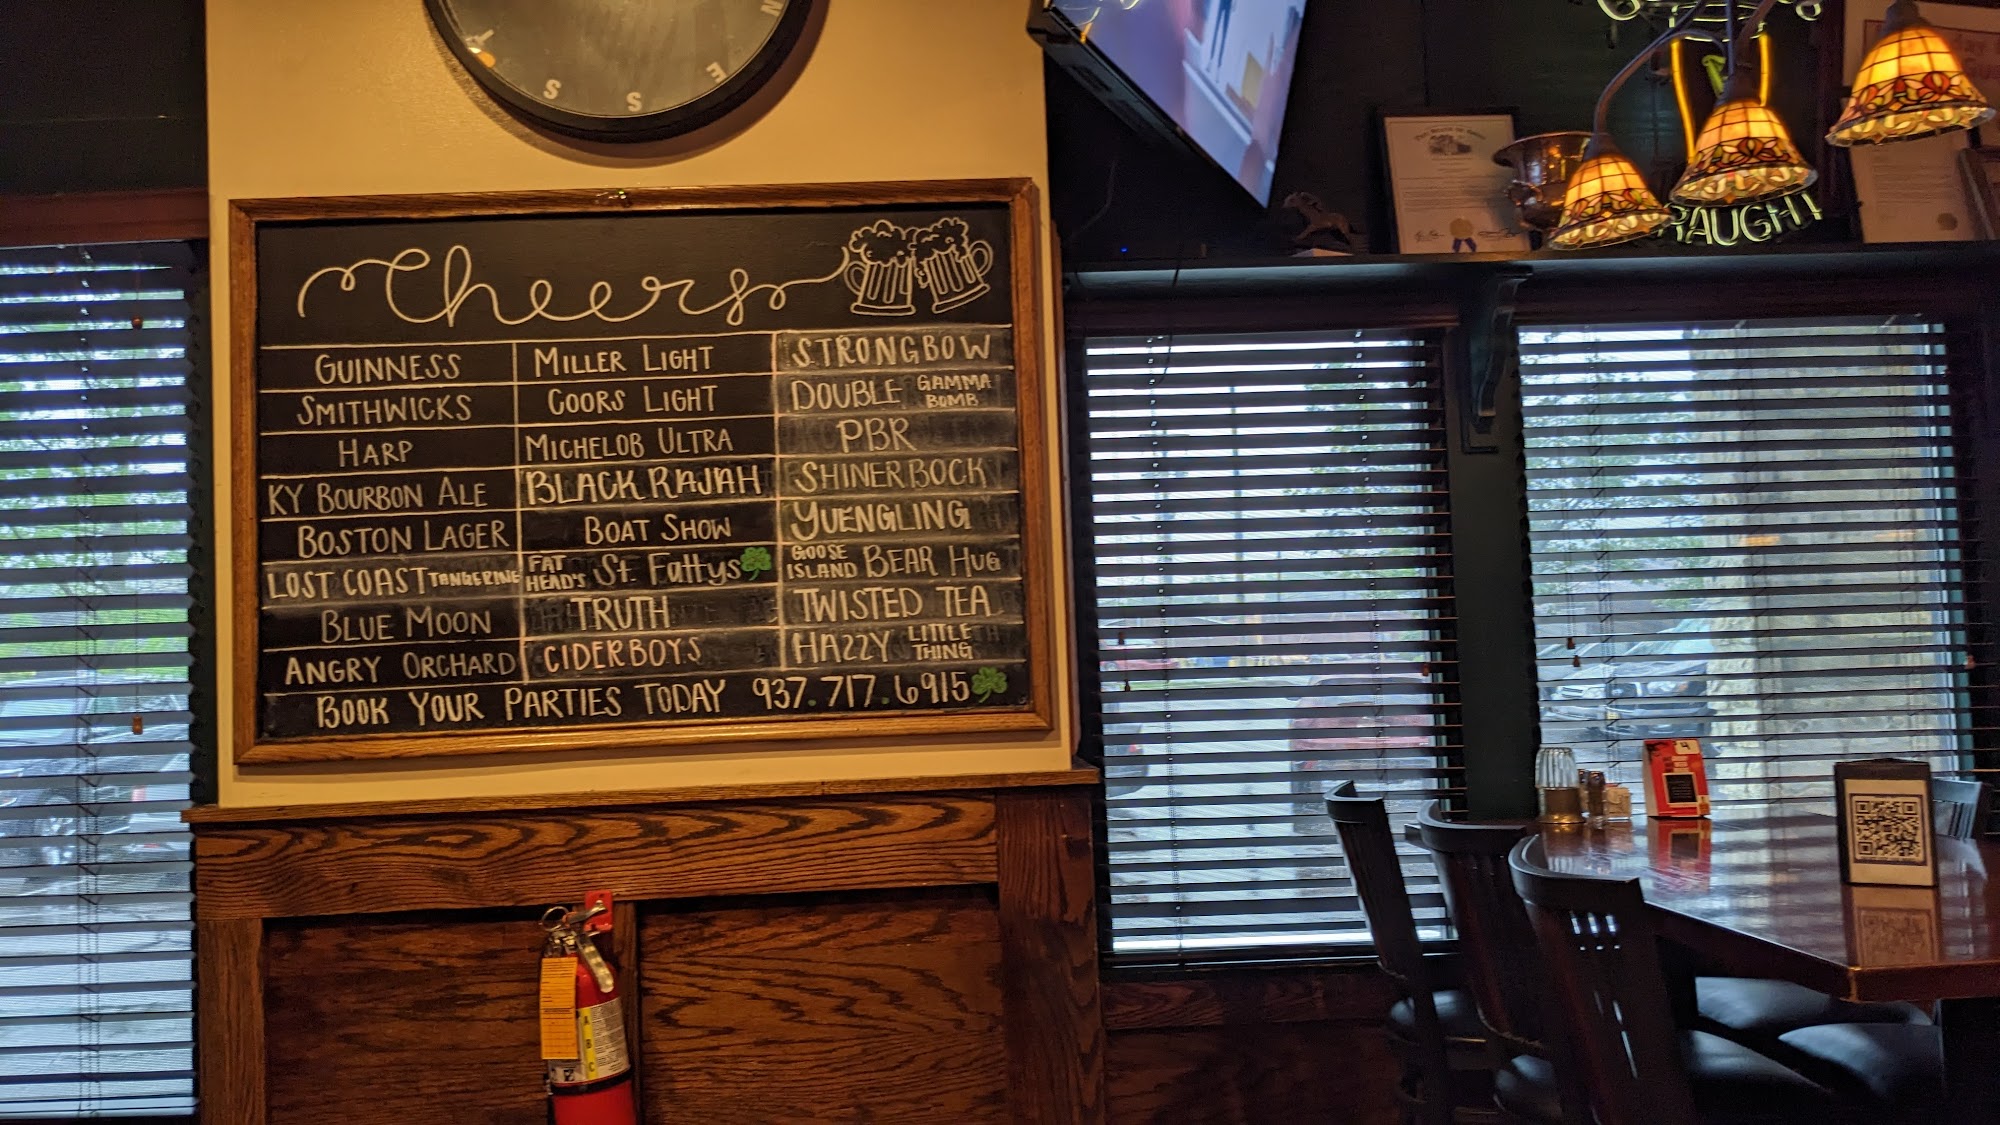 N
E
S
S
Cheers
GUINNESS
MILLER LIGHT
STRONGBOW
SMITHWICKS
COORS LIGHT
DOUBLE GAMMA BOMB
HARP
MICHELOB ULTRA
PBR
KY BOURBON ALE
BLACK RAJAH
SHINER BOCK
BOSTON LAGER
BOAT SHOW
YUENGLING
LOST COAST TANGERINE
FAT HEAD'S St. Fattys
GOOSE ISLAND BEAR HUG
BLUE MOON
TRUTH
TWISTED TEA
ANGRY ORCHARD
CIDERBOYS
HAZZY LITTLE THING
BOOK YOUR PARTIES TODAY 937.717.6915
RAUGHT
4
A
B
C